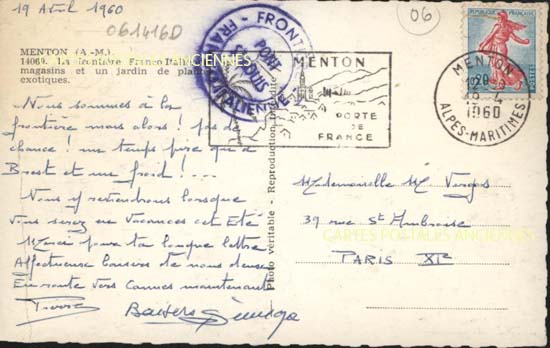 19 Avril 1960
061416D
06
MENTON (A.-M.)
14069. La frontière Franco Italienne
magasins et un jardin de plantes
exotiques.
FRONTIÈRE FRANCO ITALIENNE
PONT
LOUIS
MENTON
PORTE
DE
FRANCE
REPUBLIQUE FRANÇAISE
MENTON
20
19-4
1960
ALPES-MARITIMES
Photo véritable - Reproduction interdite
Nous sommes à la
frontière mais alors! pas de
chance! un temps pire qu'à
Brest et un froid!...
Nous y reviendrons lorsque
vous serez en vacances cet Eté
Merci pour ta longue lettre
Affectueux baisers de nous deux
En route vers Cannes maintenant
Pierre
Baisers
Mademoiselle M. Verges
39 rue St Ambroise
PARIS XIe
CARTES POSTALES ANCIENNES
CARTES POSTALES ANCIENNES